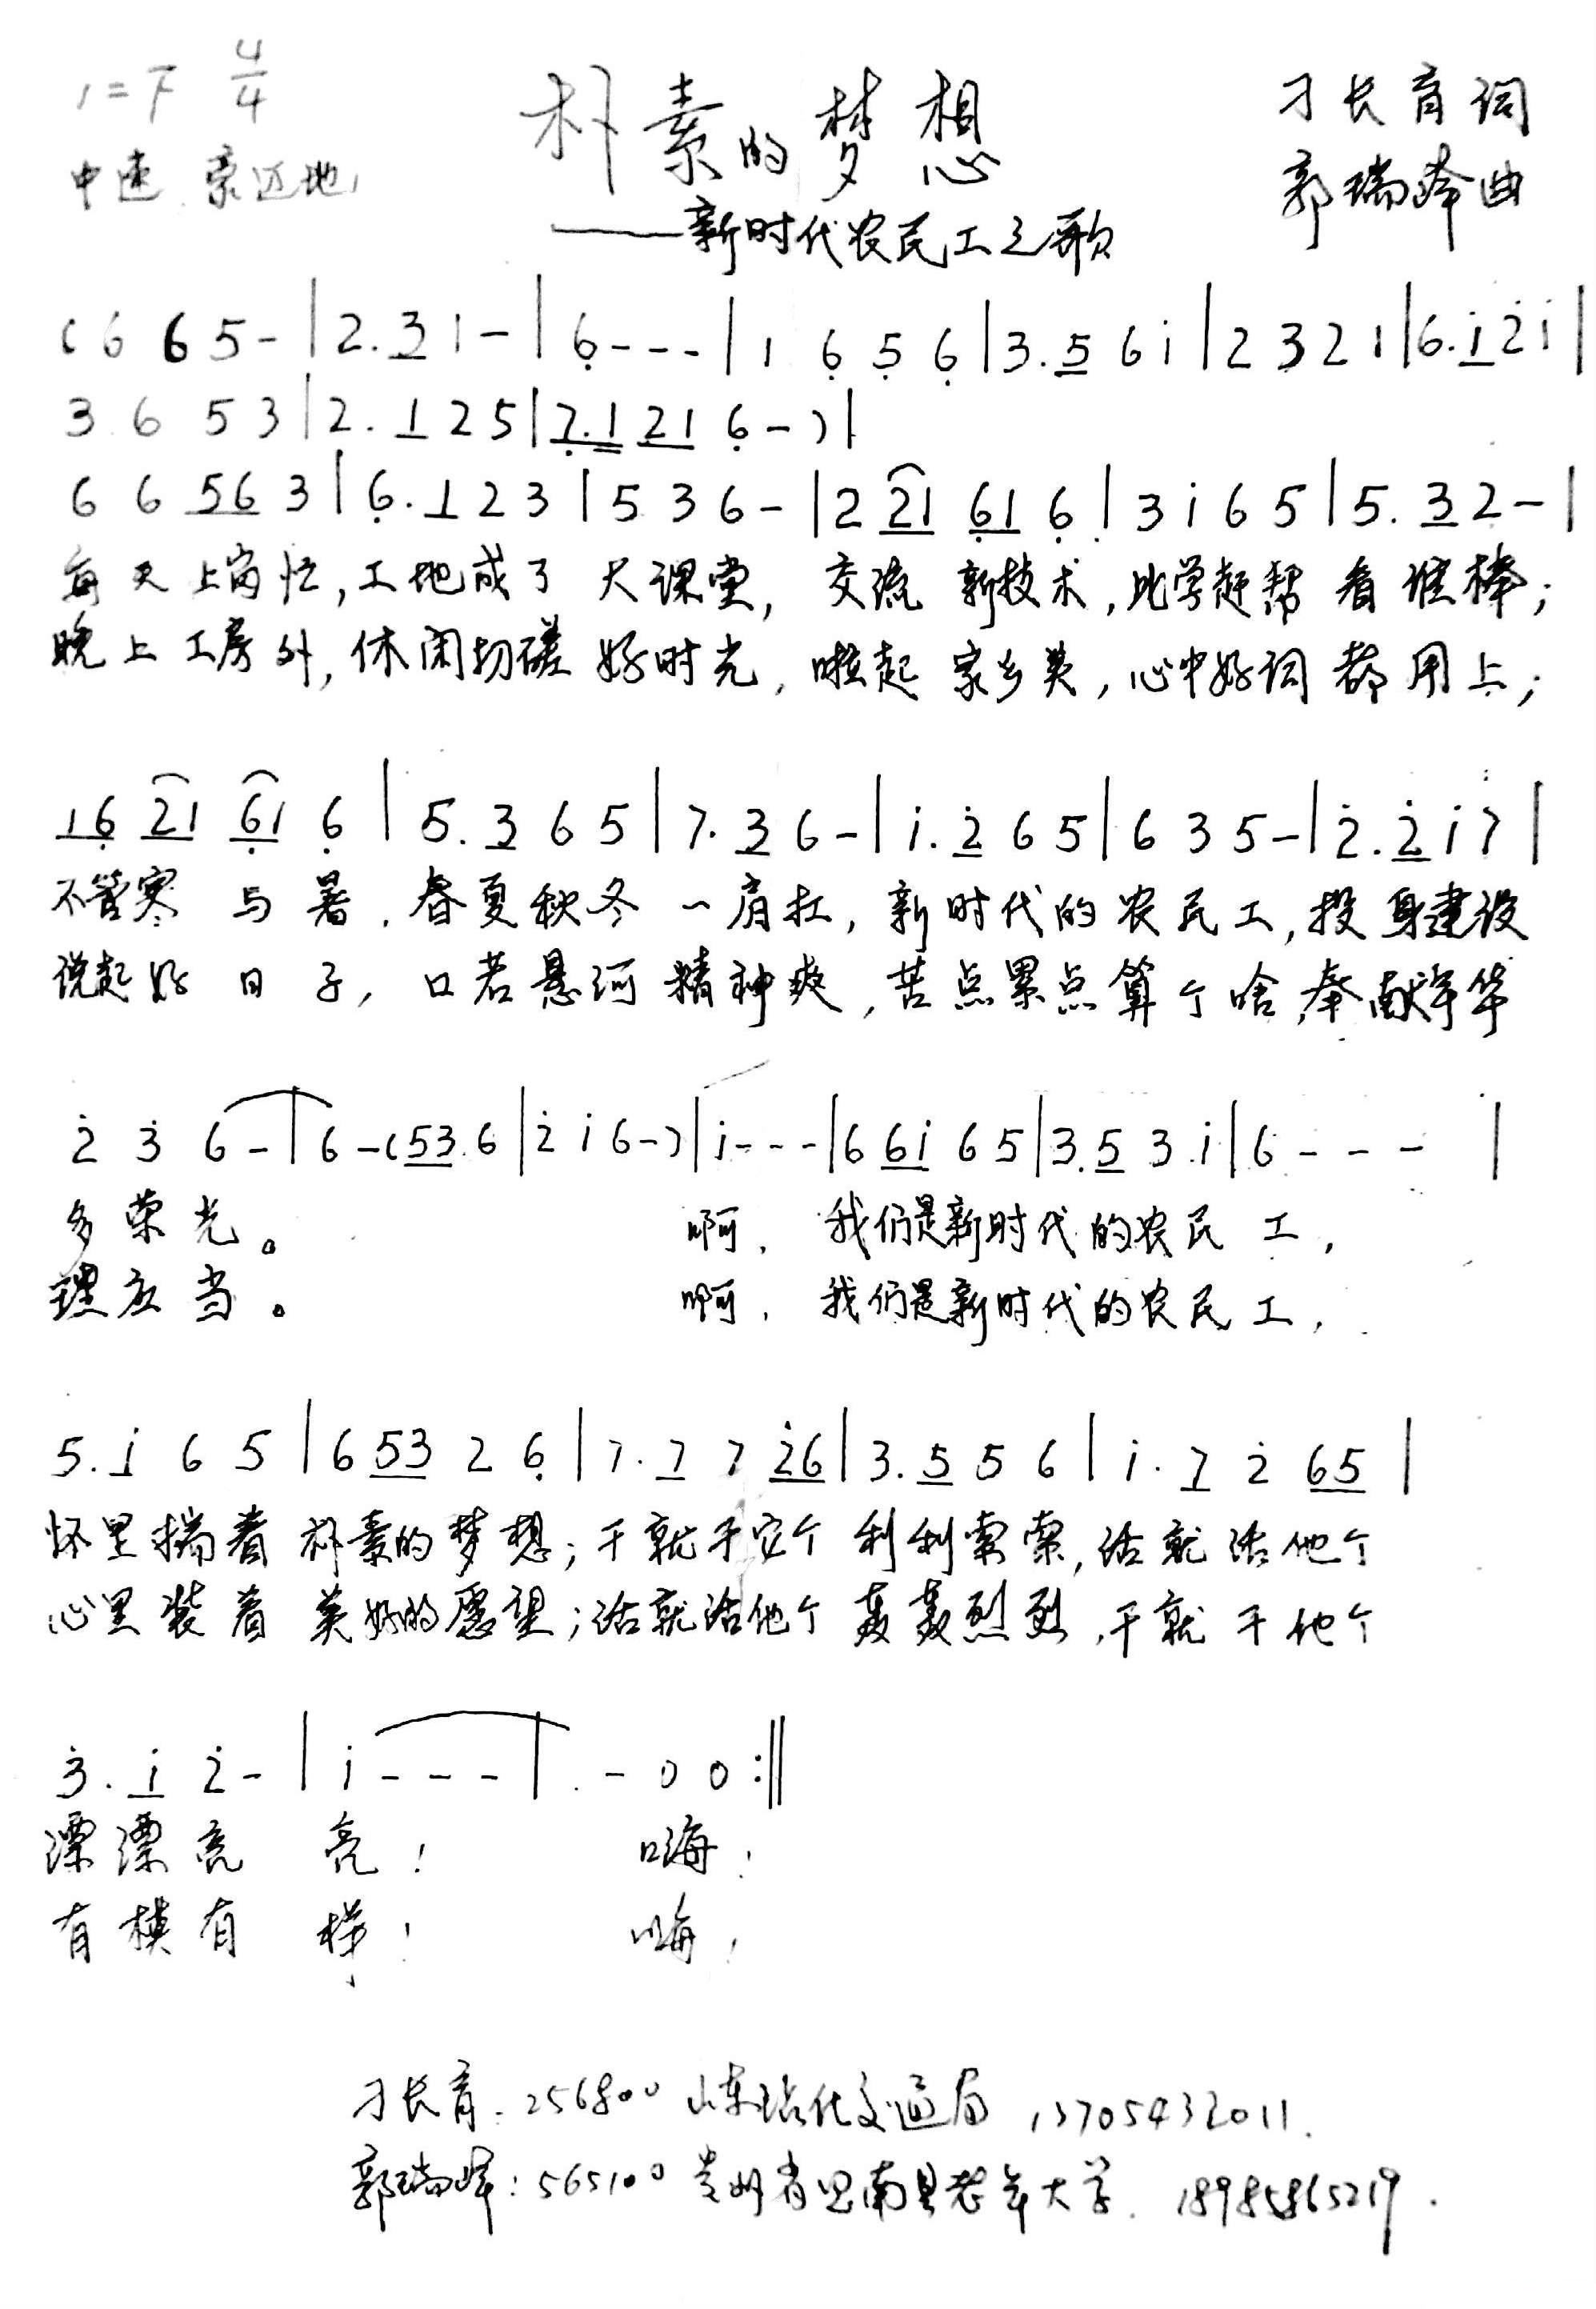 1=F 4/4
朴素的梦想
刁长育词
中速 豪迈地
郭瑞峰曲
——新时代农民工之歌
(6 6 5 - | 2. 3 1 - | 6 - - - | 1 6 5 6 | 3. 5 6 i | 2 3 2 1 | 6. i 2 i |
3 6 5 3 | 2. 1 2 5 | 7. 1 21 6 - ) |
6 6 56 3 | 6. 1 2 3 | 5 3 6 - | 2 21 61 6 | 3 i 6 5 | 5. 3 2 - |
每天上岗忙,工地成了大课堂,交流新技术,比学赶帮看谁棒;
晚上工房外,休闲切磋好时光,啦起家乡美,心中好词都用上;
16 21 61 6 | 5. 3 6 5 | 7. 3 6 - | i. 2 6 5 | 6 3 5 - | 2. 2 i 7 |
不管寒与暑,春夏秋冬一肩扛,新时代的农民工,投身建设
说起好日子,口若悬河精神爽,苦点累点算个啥,奉献年华
2 3 6 - | 6 - (53 6 | 2 i 6 - ) | i - - - | 6 6i 6 5 | 3. 5 3 i | 6 - - - |
多荣光。 啊,我们是新时代的农民工,
理应当。 啊,我们是新时代的农民工,
5. i 6 5 | 6 53 2 6 | 7. 7 7 26 | 3. 5 5 6 | i. 7 2 65 |
怀里揣着朴素的梦想;干就干它个利利索索,活就活他个
心里装着美好的愿望;活就活他个轰轰烈烈,干就干他个
3. i 2 - | i - - - | - 0 0 :||
漂漂亮亮! 嗨!
有模有样! 嗨!
刁长育:256800 山东沾化交通局 13705432011.
郭瑞峰:565100 贵州省思南县老年大学. 18985865219.